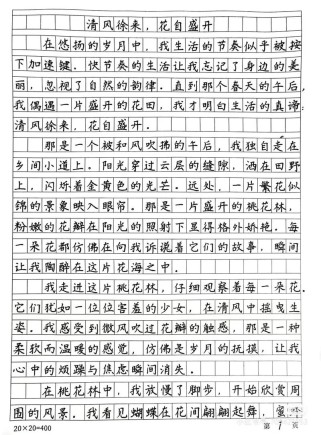 清风徐来，花自盛开
在悠扬的岁月中，我生活的节奏似乎被按
下加速键。快节奏的生活让我忘记了身边的美
丽，忽视了自然的韵律。直到那个春天的午后，
我偶遇一片盛开的花田，我才明白生活的真谛：
清风徐来，花自盛开。
那是一个被和风吹拂的午后，我独自走在
乡间小道上。阳光穿过云层的缝隙，洒在田野
上，闪烁着金黄色的光芒。远处，一片繁花似
锦的景象映入眼帘。那是一片盛开的桃花林，
粉嫩的花瓣在阳光的照射下显得格外娇艳。每
一朵花都仿佛在向我诉说着它们的故事，瞬间
让我陶醉在这片花海之中。
我走进这片桃花林，仔细观察着每一朵花。
它们犹如一位位害羞的少女，在清风中摇曳生
姿。我感受到微风吹过花瓣的触感，那是一种
柔软而温暖的感觉，仿佛是岁月的抚摸，让我
心中的烦躁与焦虑瞬间消失。
在桃花林中，我放慢了脚步，开始欣赏周
围的风景。我看见蝴蝶在花间翩翩起舞，蜜
20×20=400
第 1 页